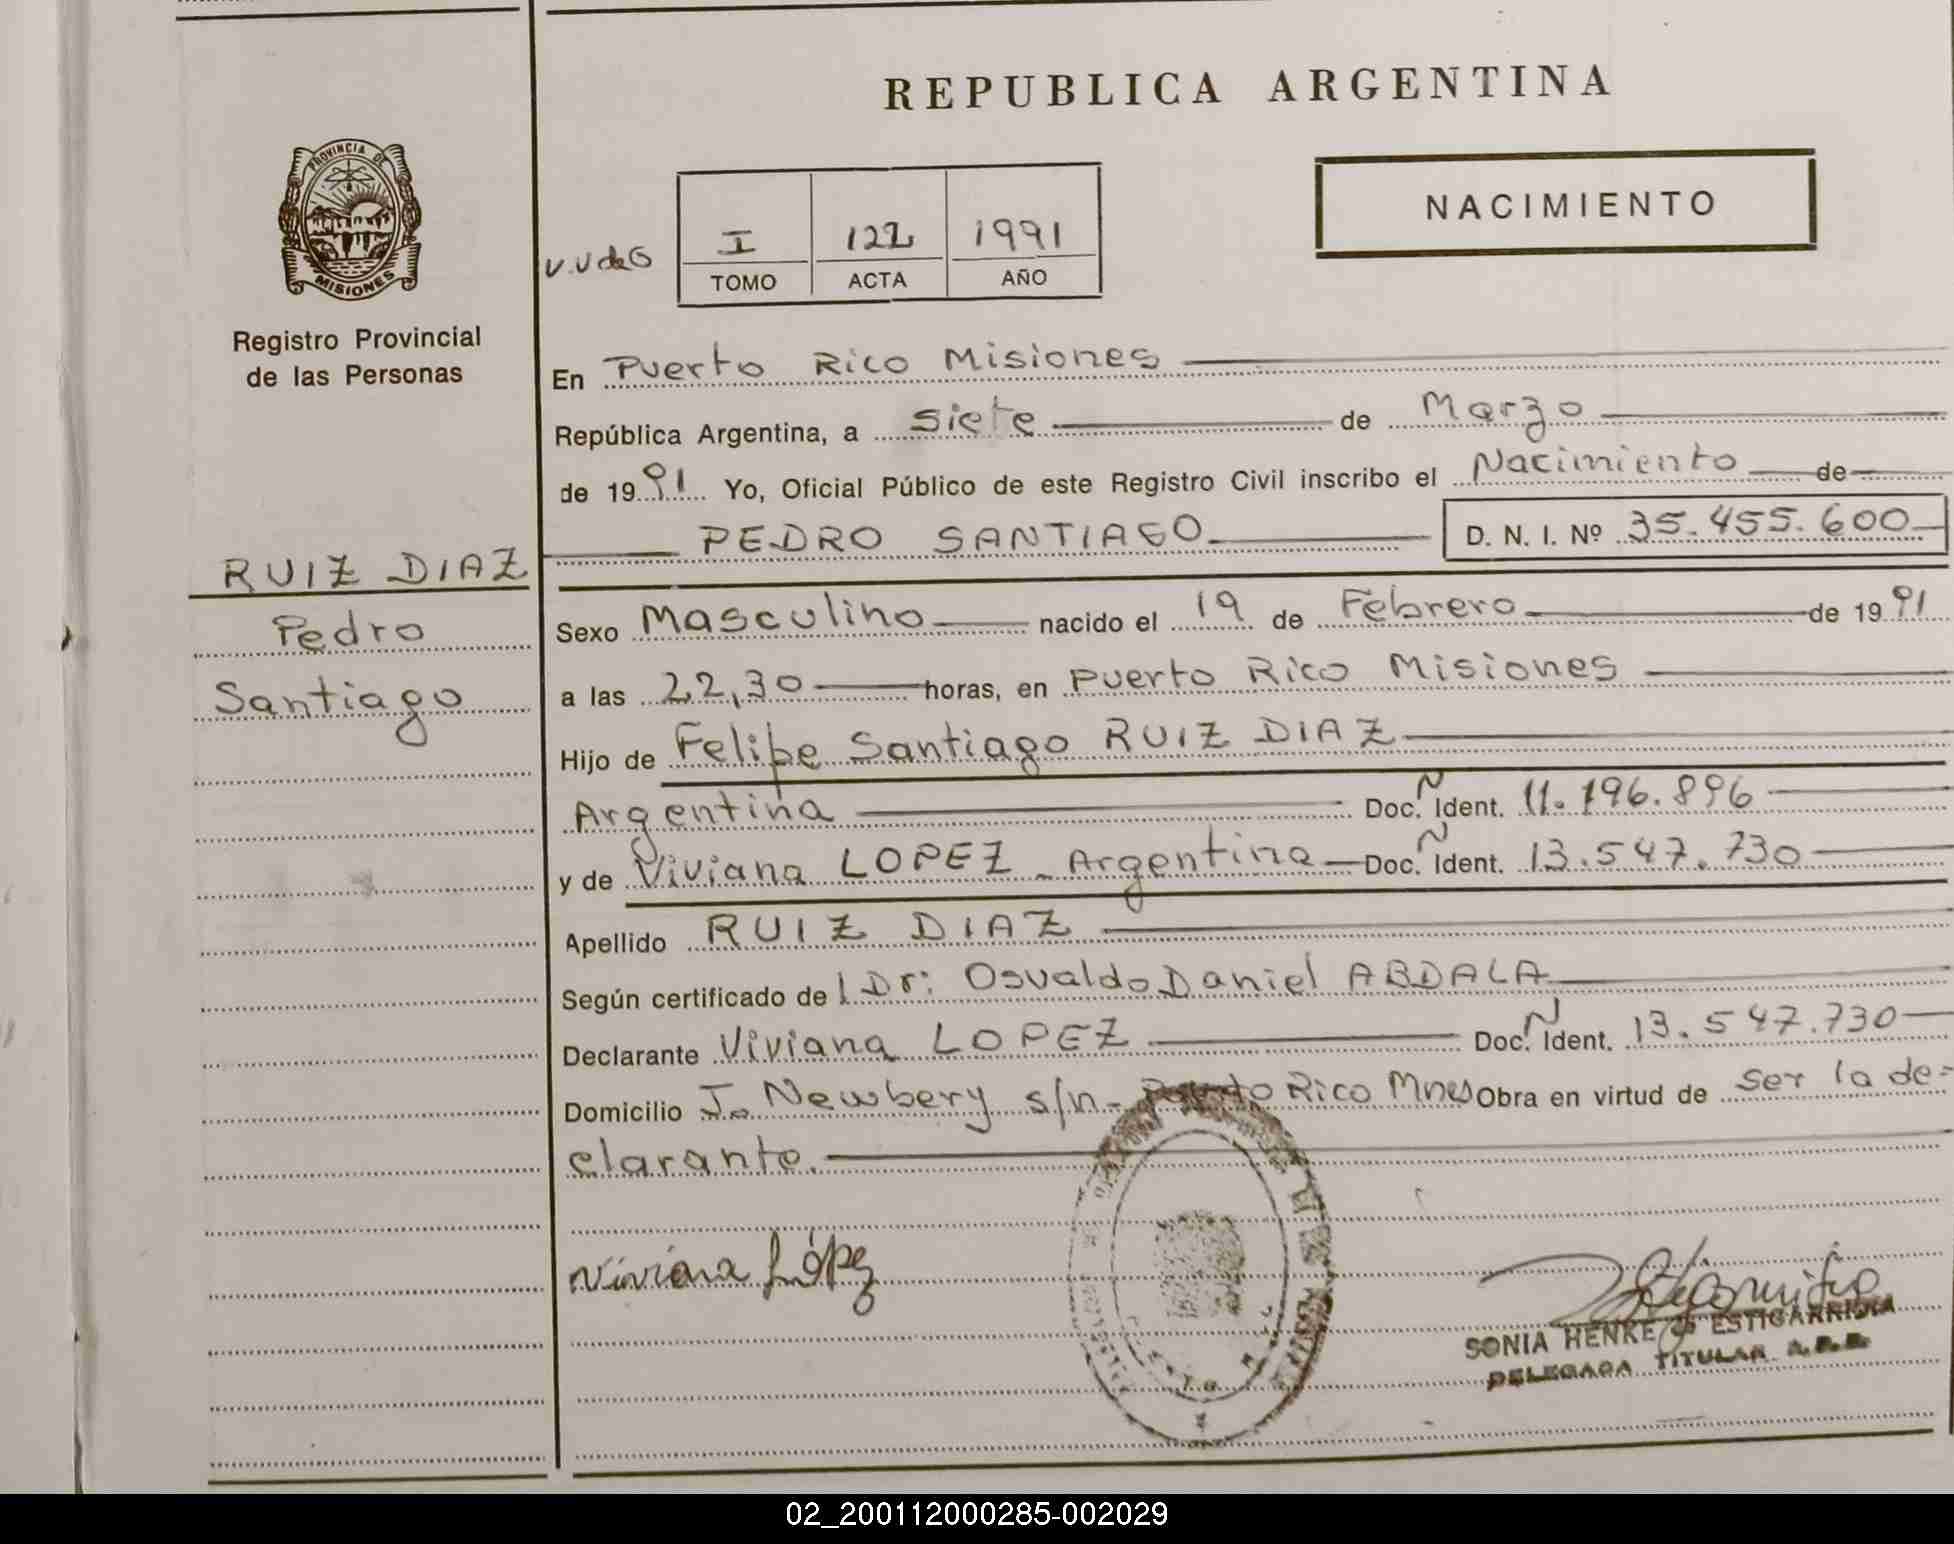 REPUBLICA ARGENTINA
PROVINCIA DE
MISIONES
Registro Provincial
de las Personas
NACIMIENTO
I 122 1991
TOMO ACTA AÑO
En Puerto Rico Misiones
República Argentina, a siete de Marzo
de 1991 Yo, Oficial Público de este Registro Civil inscribo el Nacimiento de
PEDRO SANTIAGO D. N. I. Nº 35.455.600
RUIZ DIAZ
Pedro
Santiago
Sexo Masculino nacido el 19 de Febrero de 1991
a las 22,30 horas, en Puerto Rico Misiones
Hijo de Felipe Santiago RUIZ DIAZ
Argentina Doc. N Ident. 11.196.896
y de Viviana LOPEZ - Argentina Doc. N Ident. 13.547.730
Apellido RUIZ DIAZ
Según certificado del Dr: Osvaldo Daniel ABDALA
Declarante Viviana LOPEZ Doc. N Ident. 13.547.730
Domicilio J. Newbery s/n - Puerto Rico Mnes Obra en virtud de ser la de=
clarante.
Viviana López
SONIA HENKE de ESTIGARRIBIA
DELEGADA TITULAR
02_200112000285-002029